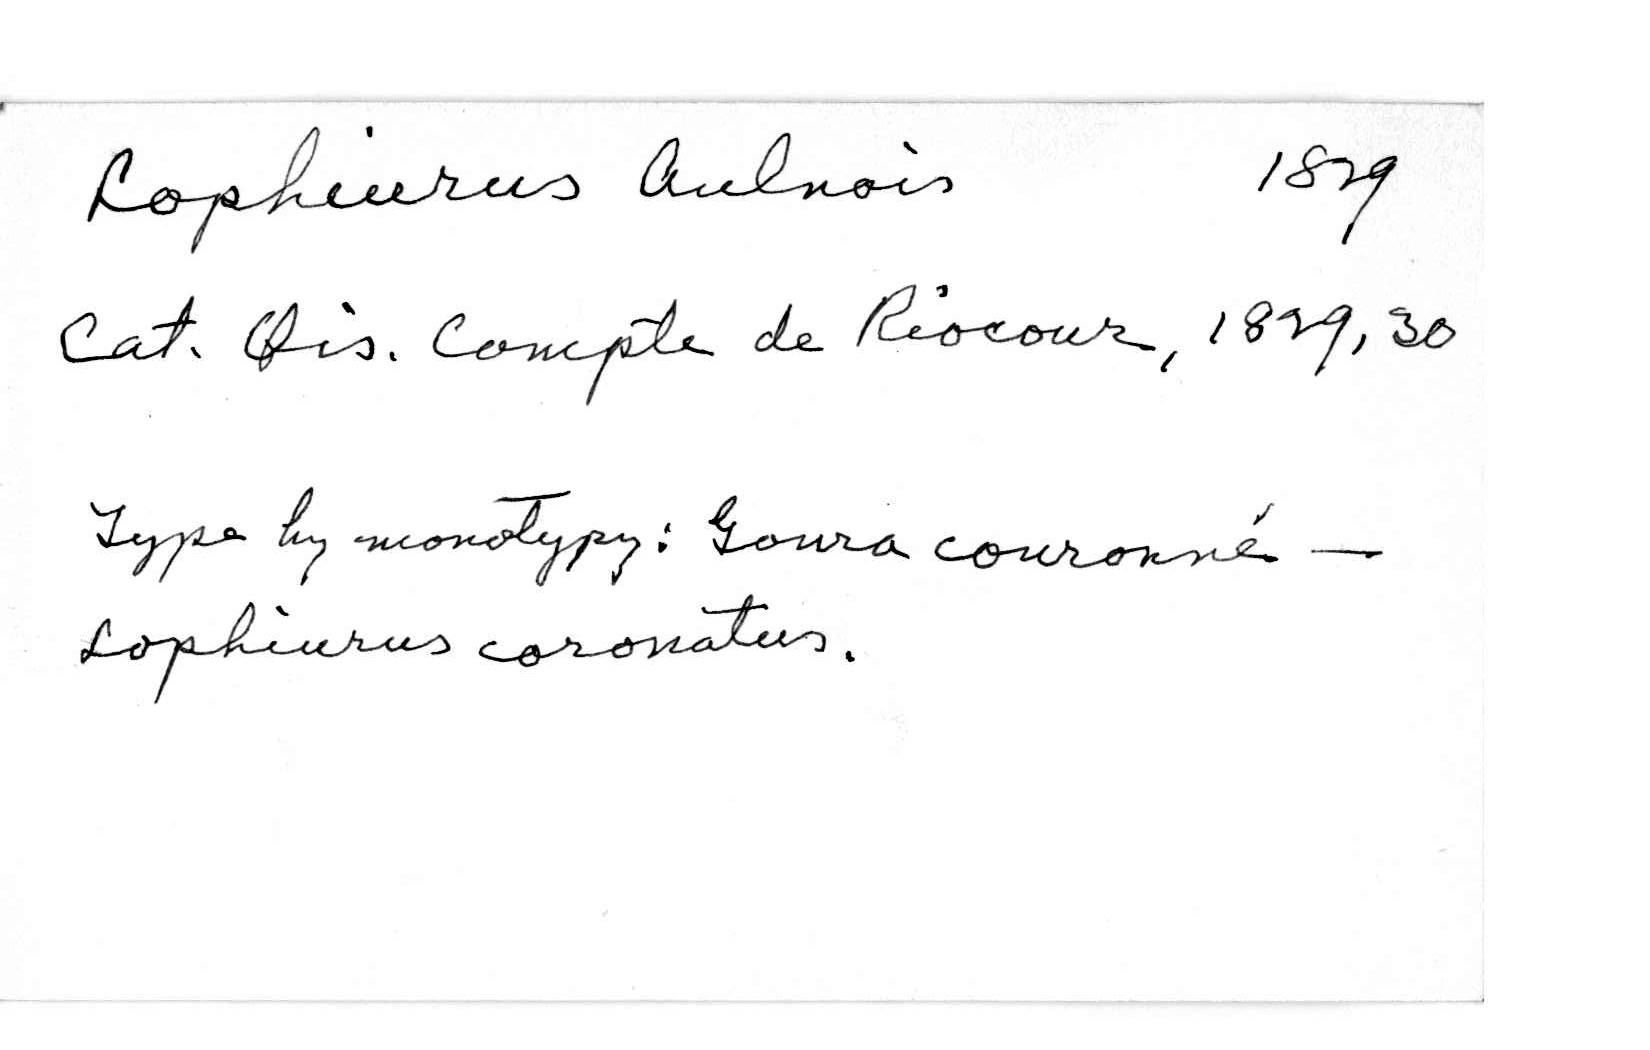 Lophiurus Aulnois 1829
Cat. Ois. Compte de Riocour, 1829, 30
Type by monotypy: Goura couronné —
Lophiurus coronatus.